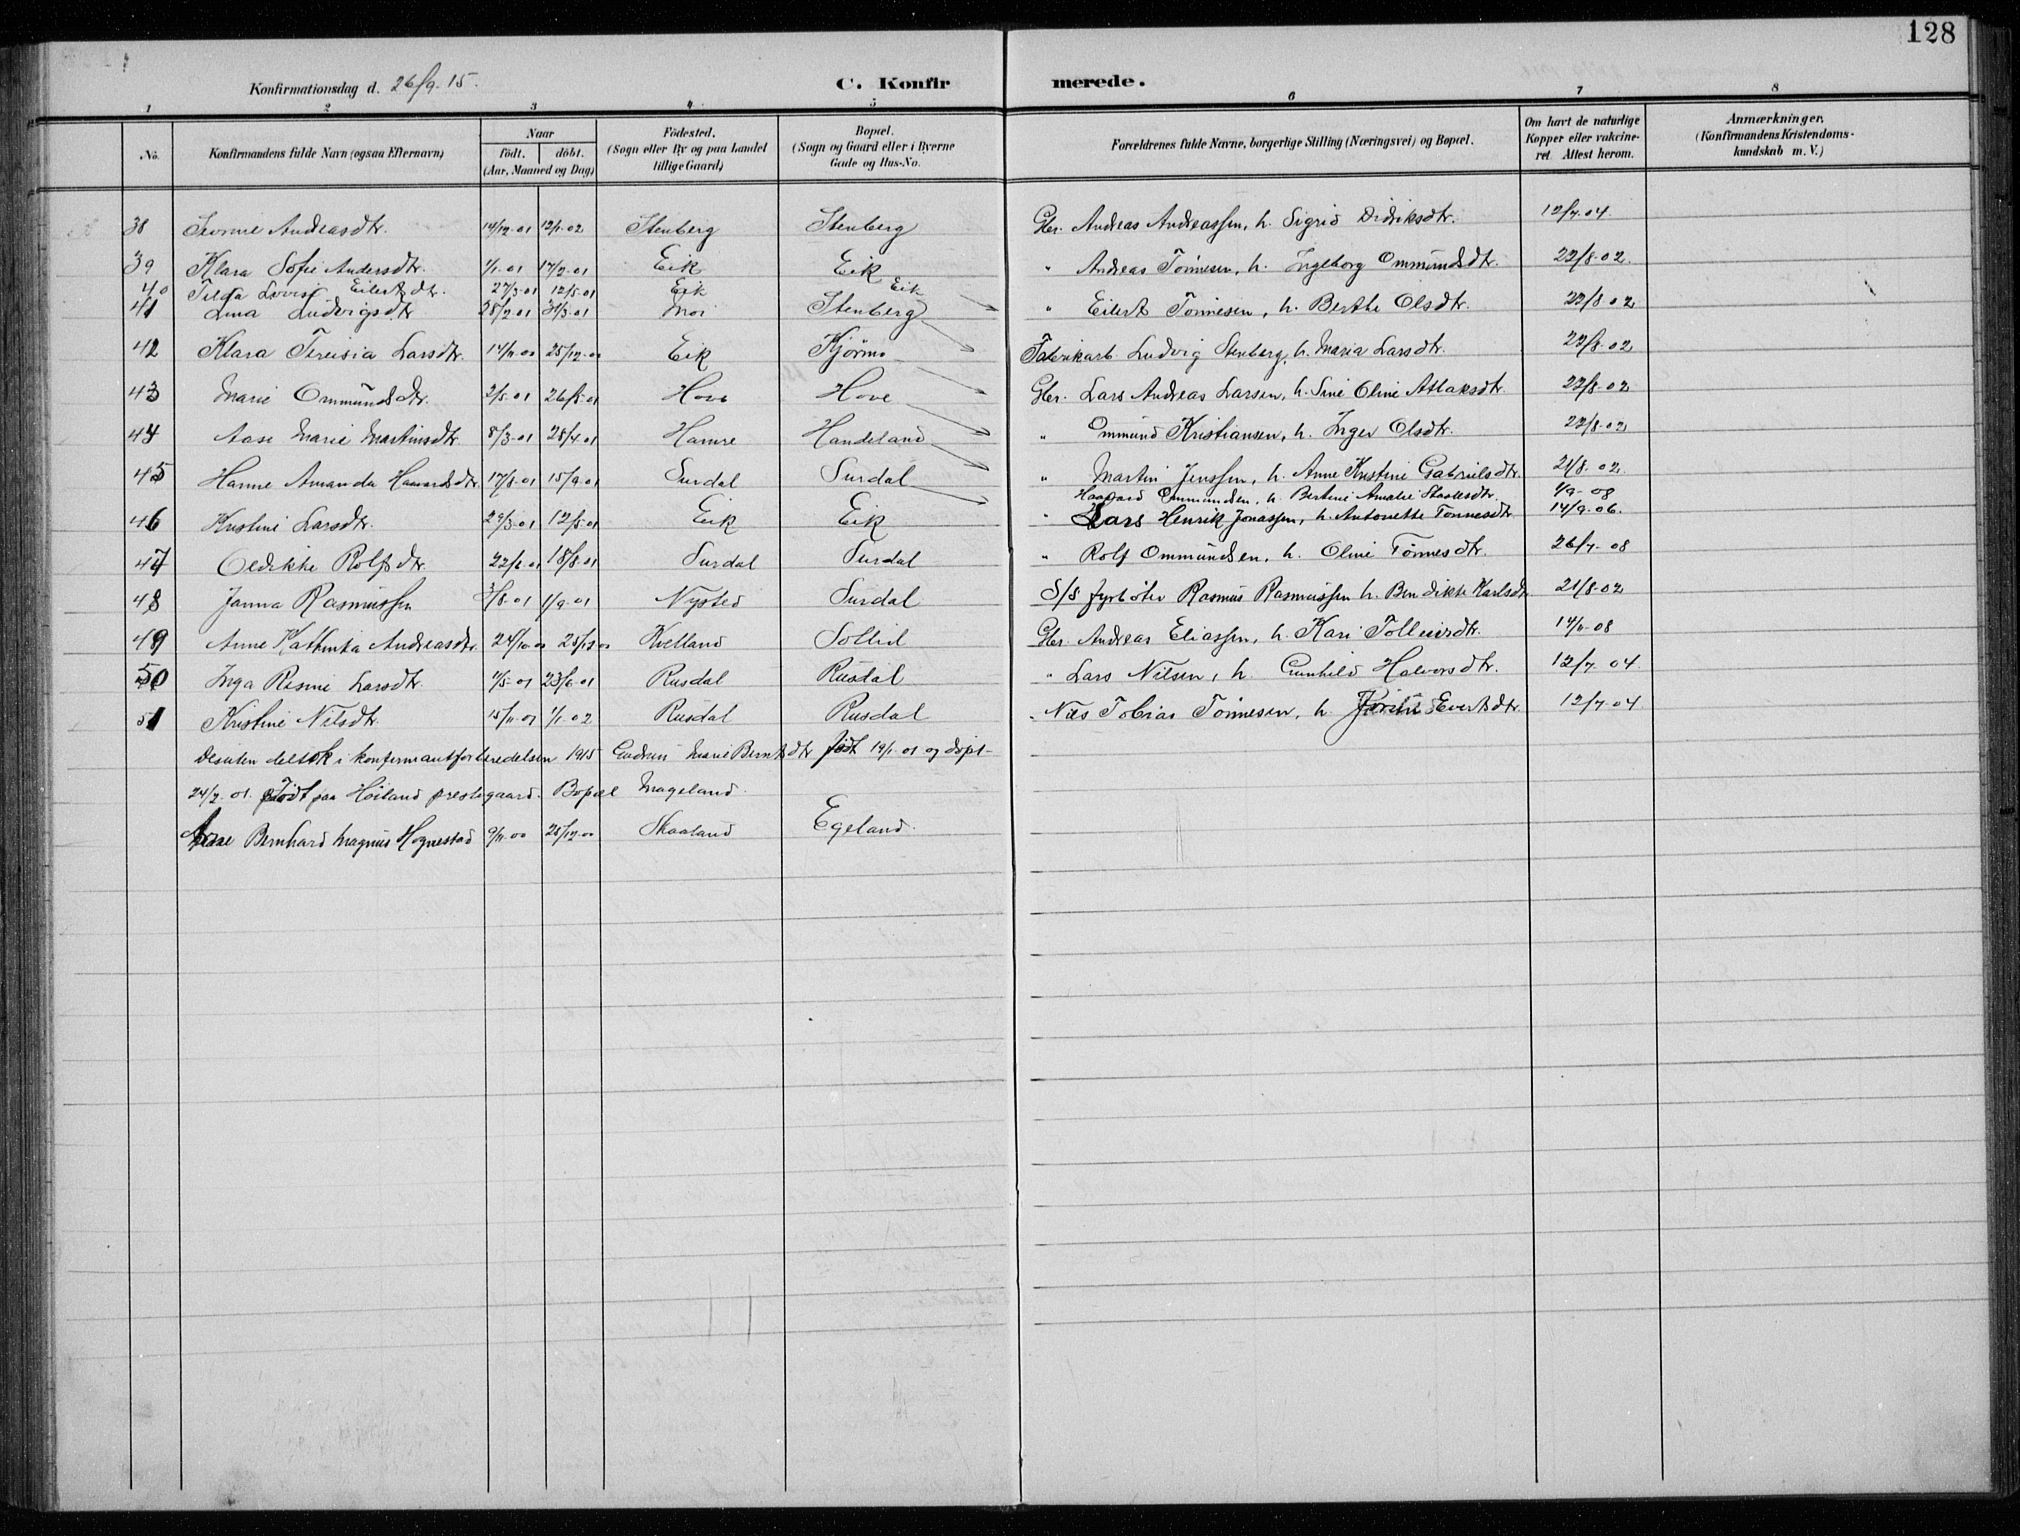 128
Konfirmationsdag d. 26/9. 15.
C. Konfirmerede.
1 2 3 4. 5 6 7 8
No.
Konfirmandens fulde Navn (ogsaa Efternavn)
Naar
födt. döbt.
(Aar, Maaned og Dag)
Födested.
(Sogn eller By og paa Landet
tillige Gaard)
Bopæl.
(Sogn og Gaard eller i Byerne
Gade og Hus-No.
Forældrenes fulde Navne, borgerlige Stilling (Næringsvei) og Bopæl.
Om havt de naturlige
Kopper eller vakcine-
ret. Attest herom.
Anmærkninger.
(Konfirmandens Kristendoms-
kundskab m. V.)
38 Andreasdtr. 14/12-01 12/1-02 Stenberg Stenberg Gbr. Andreas Andreassen, h. Sigrid Didriksdtr. 12/7.04.
39 Klara Sofie Andersdtr. 1/1-01 17/2-01 Eik Eik " Andreas Tönnesen, h. Ingeborg Ommundsdtr. 22/8-02.
40 Tilda Lovise Eilertsdtr. 27/3-01 12/5-01 Eik Eik
41 Lina Ludvigsdtr 28/2-01 31/3-01 Moi Stenberg " Eilert Tönnesen, h. Berthe Olsdtr. 22/8 02
42 Klara Teresia Larsdtr. 14/11-00 25/12-00 Eik Kjörmo Fabrikarb. Ludvig Stenberg, h. Maria Larsdtr. 22/8-02
43 Marie Ommundsdtr. 2/5-01 26/5-01 Hove Hove Gbr. Lars Andreas Larsen, h. Sine Oline Atlaksdtr. 22/8-02
44 Aase Marie Martinsdtr. 8/3-01 28/4-01 Hamre Handeland " Ommund Kristiansen, h. Inger Olsdtr. 22/8-02
45 Hanne Amanda Hawardsdtr. 17/8-01 15/9-01 Surdal Surdal " Martin Jenssen, h. Anne Kristine Gabrielsdtr. 21/8.02.
Haavard Ommundsen, h. Bertine Amalie 1/9-08
46 Kristine Larsdtr. 29/3-01 12/5-01 Eik Eik " Lars Henrik Jonassen, h. Antonette Tönnesdtr. 14/9-06.
47 Oldikke Rolfsdtr. 22/6-01 18/8-01 Surdal Surdal " Rolf Ommundsen, h. Oline Tönnesdtr. 26/7-08
48 Janna Rasmussen 3/8-01 1/9-01 Nysted Surdal S/S fyrböter Rasmus Rasmussen h. Bendikte Karlsdtr 21/8-02
49 Anne Kathinka Andreasdtr. 24/10-00 25/12-00 Kvelland Sollid Gbr. Andreas Eliassen, h. Kari Tolleivsdtr. 14/6-08
50 Inga Rasmine Larsdtr. 11/5-01 23/6-01 Rusdal Rusdal " Lars Nilsen, h. Gunhild Halvorsdtr. 12/7.04.
51 Kristine Nilsdtr. 15/11-01 1/1-02 Rusdal Rusdal " Nils Tobias Tönnesen, h. Evertsdtr. 12/7-04
Desuten deltok i konfirmantforberedelsen 1915 Gudrun Marie Berntsdtr födt 19/1-01 og döpt
24/2 01. Födt paa Höiland prestegaard. Bopæl Mageland.
Arne Bernhard Magnus Hognestad 9/11-00 25/12-00 Skaaland Egeland.